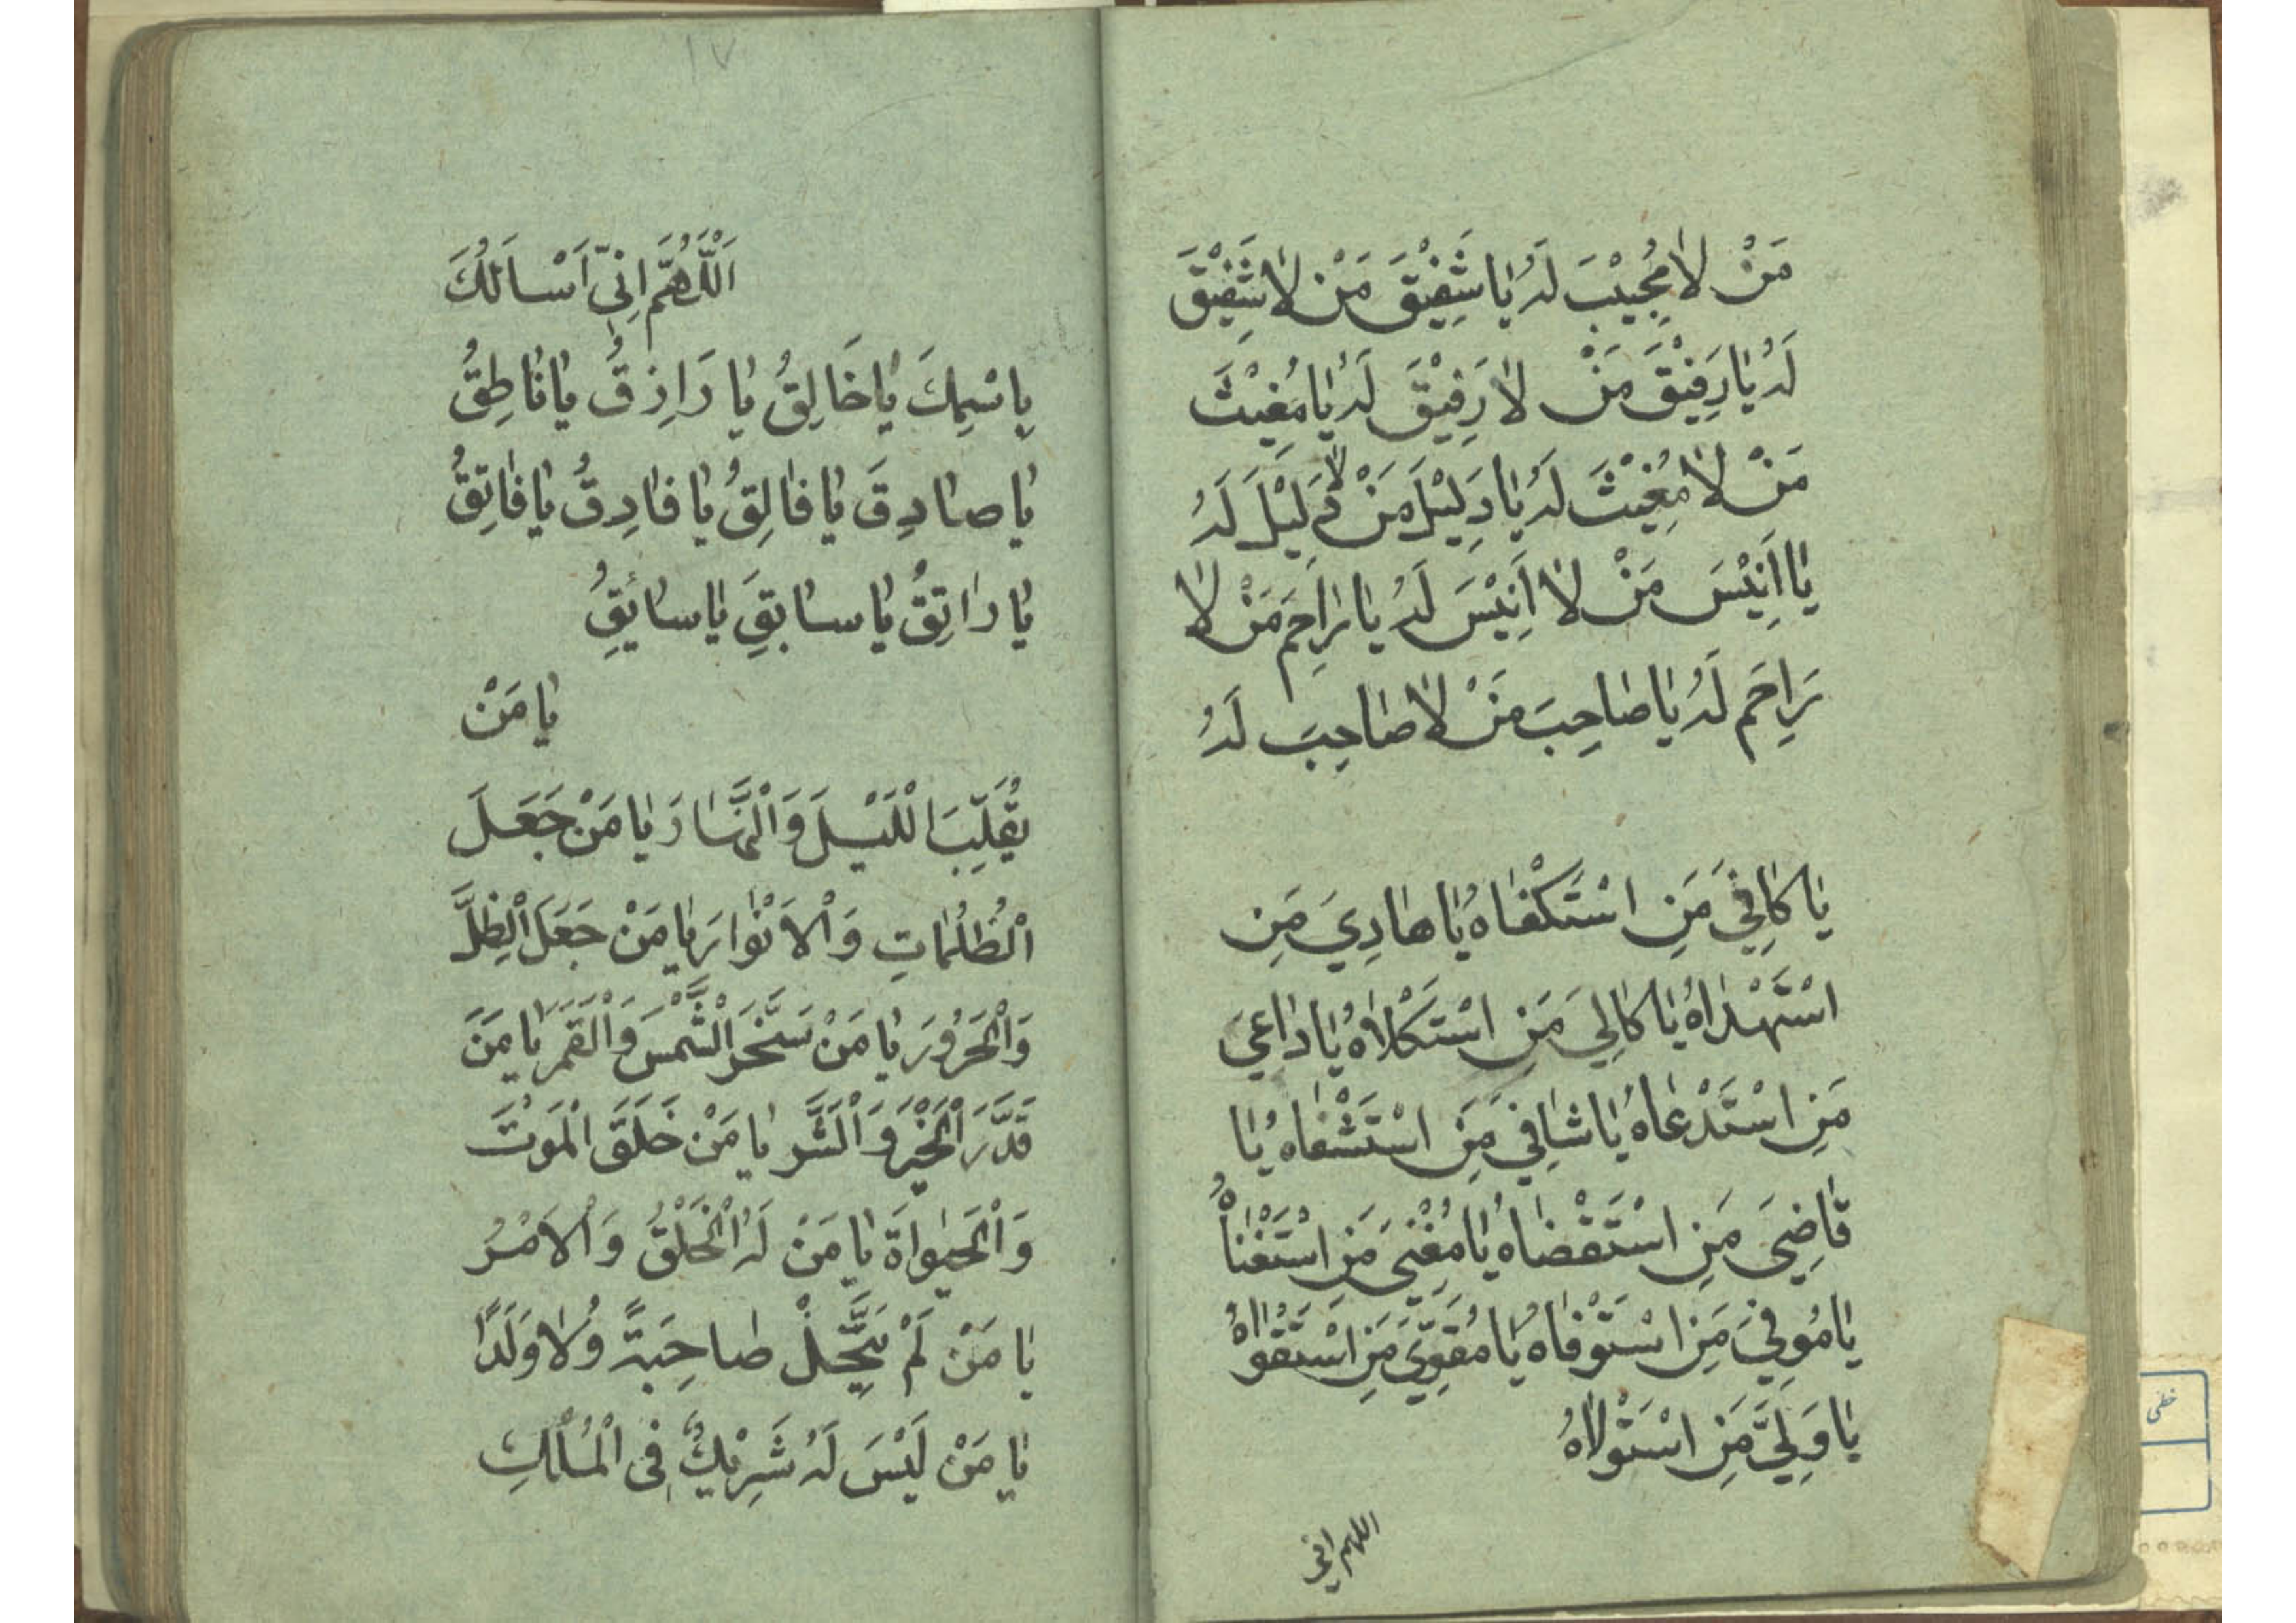 مَنْ لَا مُجِيْبَ لَهُ يَا شَفِيْقَ مَنْ لَا شَفِيْقَ
لَهُ يَا رَفِيْقَ مَنْ لَا رَفِيْقَ لَهُ يَا مُغِيْثَ
مَنْ لَا مُغِيْثَ لَهُ يَا دَلِيْلَ مَنْ لَا دَلِيْلَ لَهُ
يَا اَنِيْسَ مَنْ لَا اَنِيْسَ لَهُ يَا رَاحِمَ مَنْ لَا
رَاحِمَ لَهُ يَا صَاحِبَ مَنْ لَا صَاحِبَ لَهُ
يَا كَافِيَ مَنِ اسْتَكْفَاهُ يَا هَادِيَ مَنِ
اسْتَهْدَاهُ يَا كَالِيَ مَنِ اسْتَكْلَاهُ يَا دَاعِيَ
مَنِ اسْتَدْعَاهُ يَا شَافِيَ مَنِ اسْتَشْفَاهُ يَا
قَاضِيَ مَنِ اسْتَقْضَاهُ يَا مُغْنِيَ مَنِ اسْتَغْنَاهُ
يَا مُوفِيَ مَنِ اسْتَوْفَاهُ يَا مُقَوِّيَ مَنِ اسْتَقْوَاهُ
يَا وَلِيَّ مَنِ اسْتَوْلَاهُ
اللهم اني
١٧
اَللّٰهُمَّ اِنِّي اَسْاَلُكَ
بِاسْمِكَ يَا خَالِقُ يَا رَازِقُ يَا نَاطِقُ
يَا صَادِقَ يَا فَالِقُ يَا فَارِقُ يَا فَاتِقُ
يَا رَاتِقُ يَا سَابِقَ يَا سَائِقُ
يَا مَنْ
يُقَلِّبَ الْلَيْلَ وَالْنَّهَارَ يَا مَنْ جَعَلَ
الْظُلُمَاتِ وَالْاَنْوَارَ يَا مَنْ جَعَلَ الْظِلَّ
وَالْحَرُورَ يَا مَنْ سَخَّرَ الْشَّمْسَ وَالْقَمَرَ يَا مَنْ
قَدَّرَ الْخَيْرَ وَالْشَّر يَا مَنْ خَلَقَ الْمَوْتَ
وَالْحَيٰوةَ يَا مَنْ لَهُ الْخَلْقُ وَالْاَمْرُ
يَا مَنْ لَمْ يَتَّخِذْ صَاحِبَةً وَلَا وَلَدًا
يَا مَنْ لَيْسَ لَهُ شَرِيْكٌ فِى الْمُلْكِ
خطى